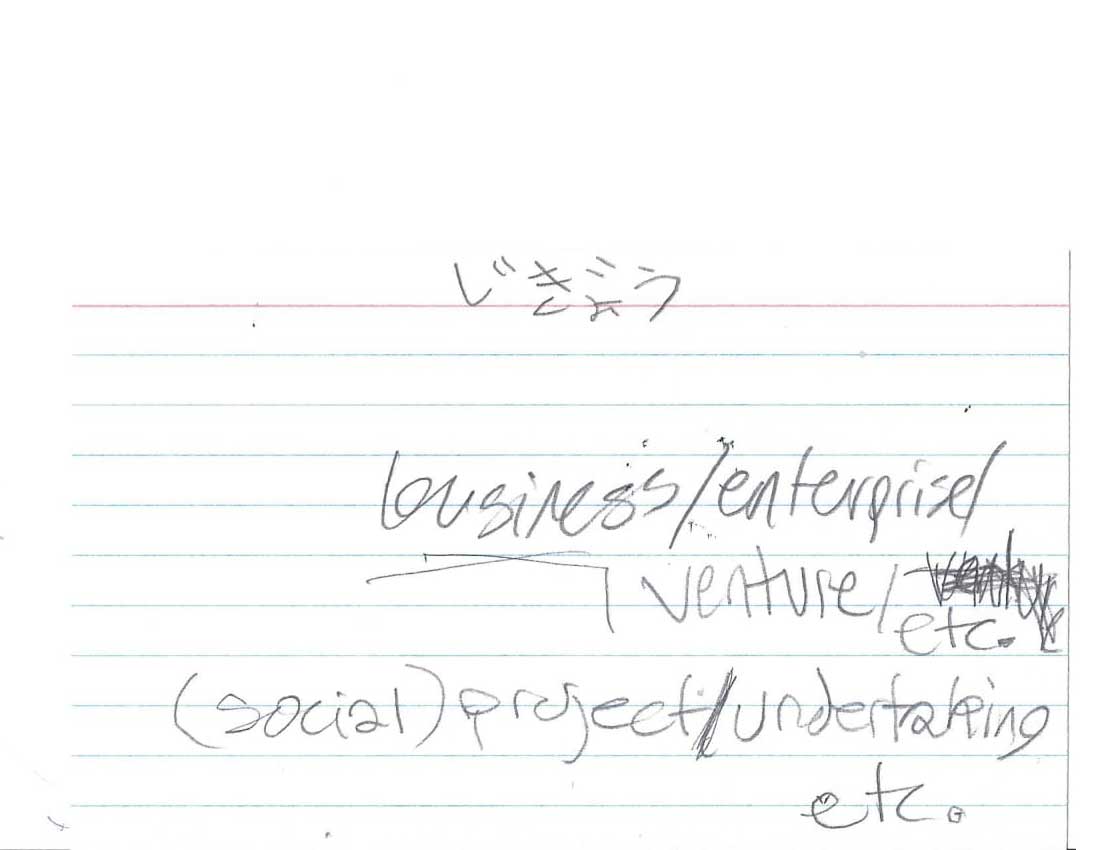 じぎょう
business/enterprise/
venture/
etc.
(social) project/undertaking
etc.